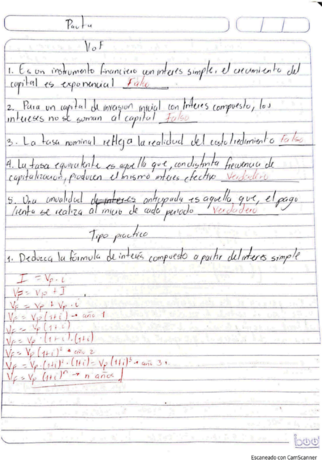 Pauta
V o F
1. En un instrumento financiero con interes simple. el crecimiento del
capital es exponencial Falso
2. Para un capital de inversion inicial con Interes compuesto, los
intereses no se suman al capital Falso
3. La tasa nominal refleja la realidad del costo/rendimiento Falso
4. La tasa equivalente es aquella que, con distinta frecuencia de
capitalización, producen el mismo interes efectivo Verdadero
5. Una anualidad anticipada es aquella que, el pago
se realiza al inicio de cada periodo Verdadero
Tipo practico
1. Deduzca la fórmula de interés compuesto a partir del interes simple
I = Vp . i
VF = Vp + I
VF = Vp + Vp . i
VF = Vp (1+i) → año 1
VF = Vp (1+i)
VF = Vp (1+i) . (1+i)
VF = Vp (1+i)² → año 2
VF = Vp (1+i)² . (1+i) = Vp (1+i)³ → año 3
VF = Vp (1+i)ⁿ → n años
Escaneado con CamScanner